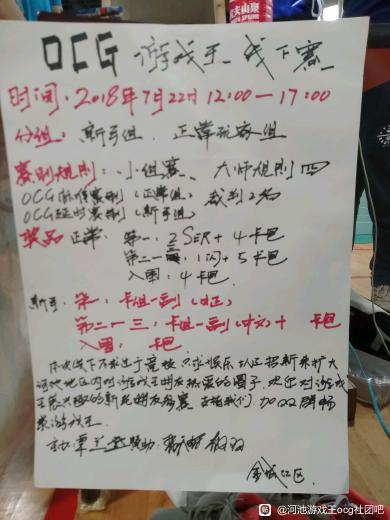 OCG 游戏王 线下赛
时间：2018年7月22日 12:00—17:00
分组：新手组、正常玩家组
赛制规则：小组赛、大师规则四
OCG标准赛制（正常组） 裁判2名
OCG延时赛制（新手组）
奖品 正常：第一：2 SER + 4卡包
第二—三：1闪 + 5卡包
入围：4卡包
新手：第一：卡组一副（日正）
第二—三：卡组一副（中文）+ 卡包
入围： 卡包
本次线下不求过于竞技 只求娱乐 以还招新来扩大
河池地区内对游戏王朋友热爱的圈子，欢迎对游戏
王感兴趣的新老朋友参赛 支持我们 加QQ群畅
聊游戏王
主办： 赞助：
金城江区
@河池游戏王ocg社团吧